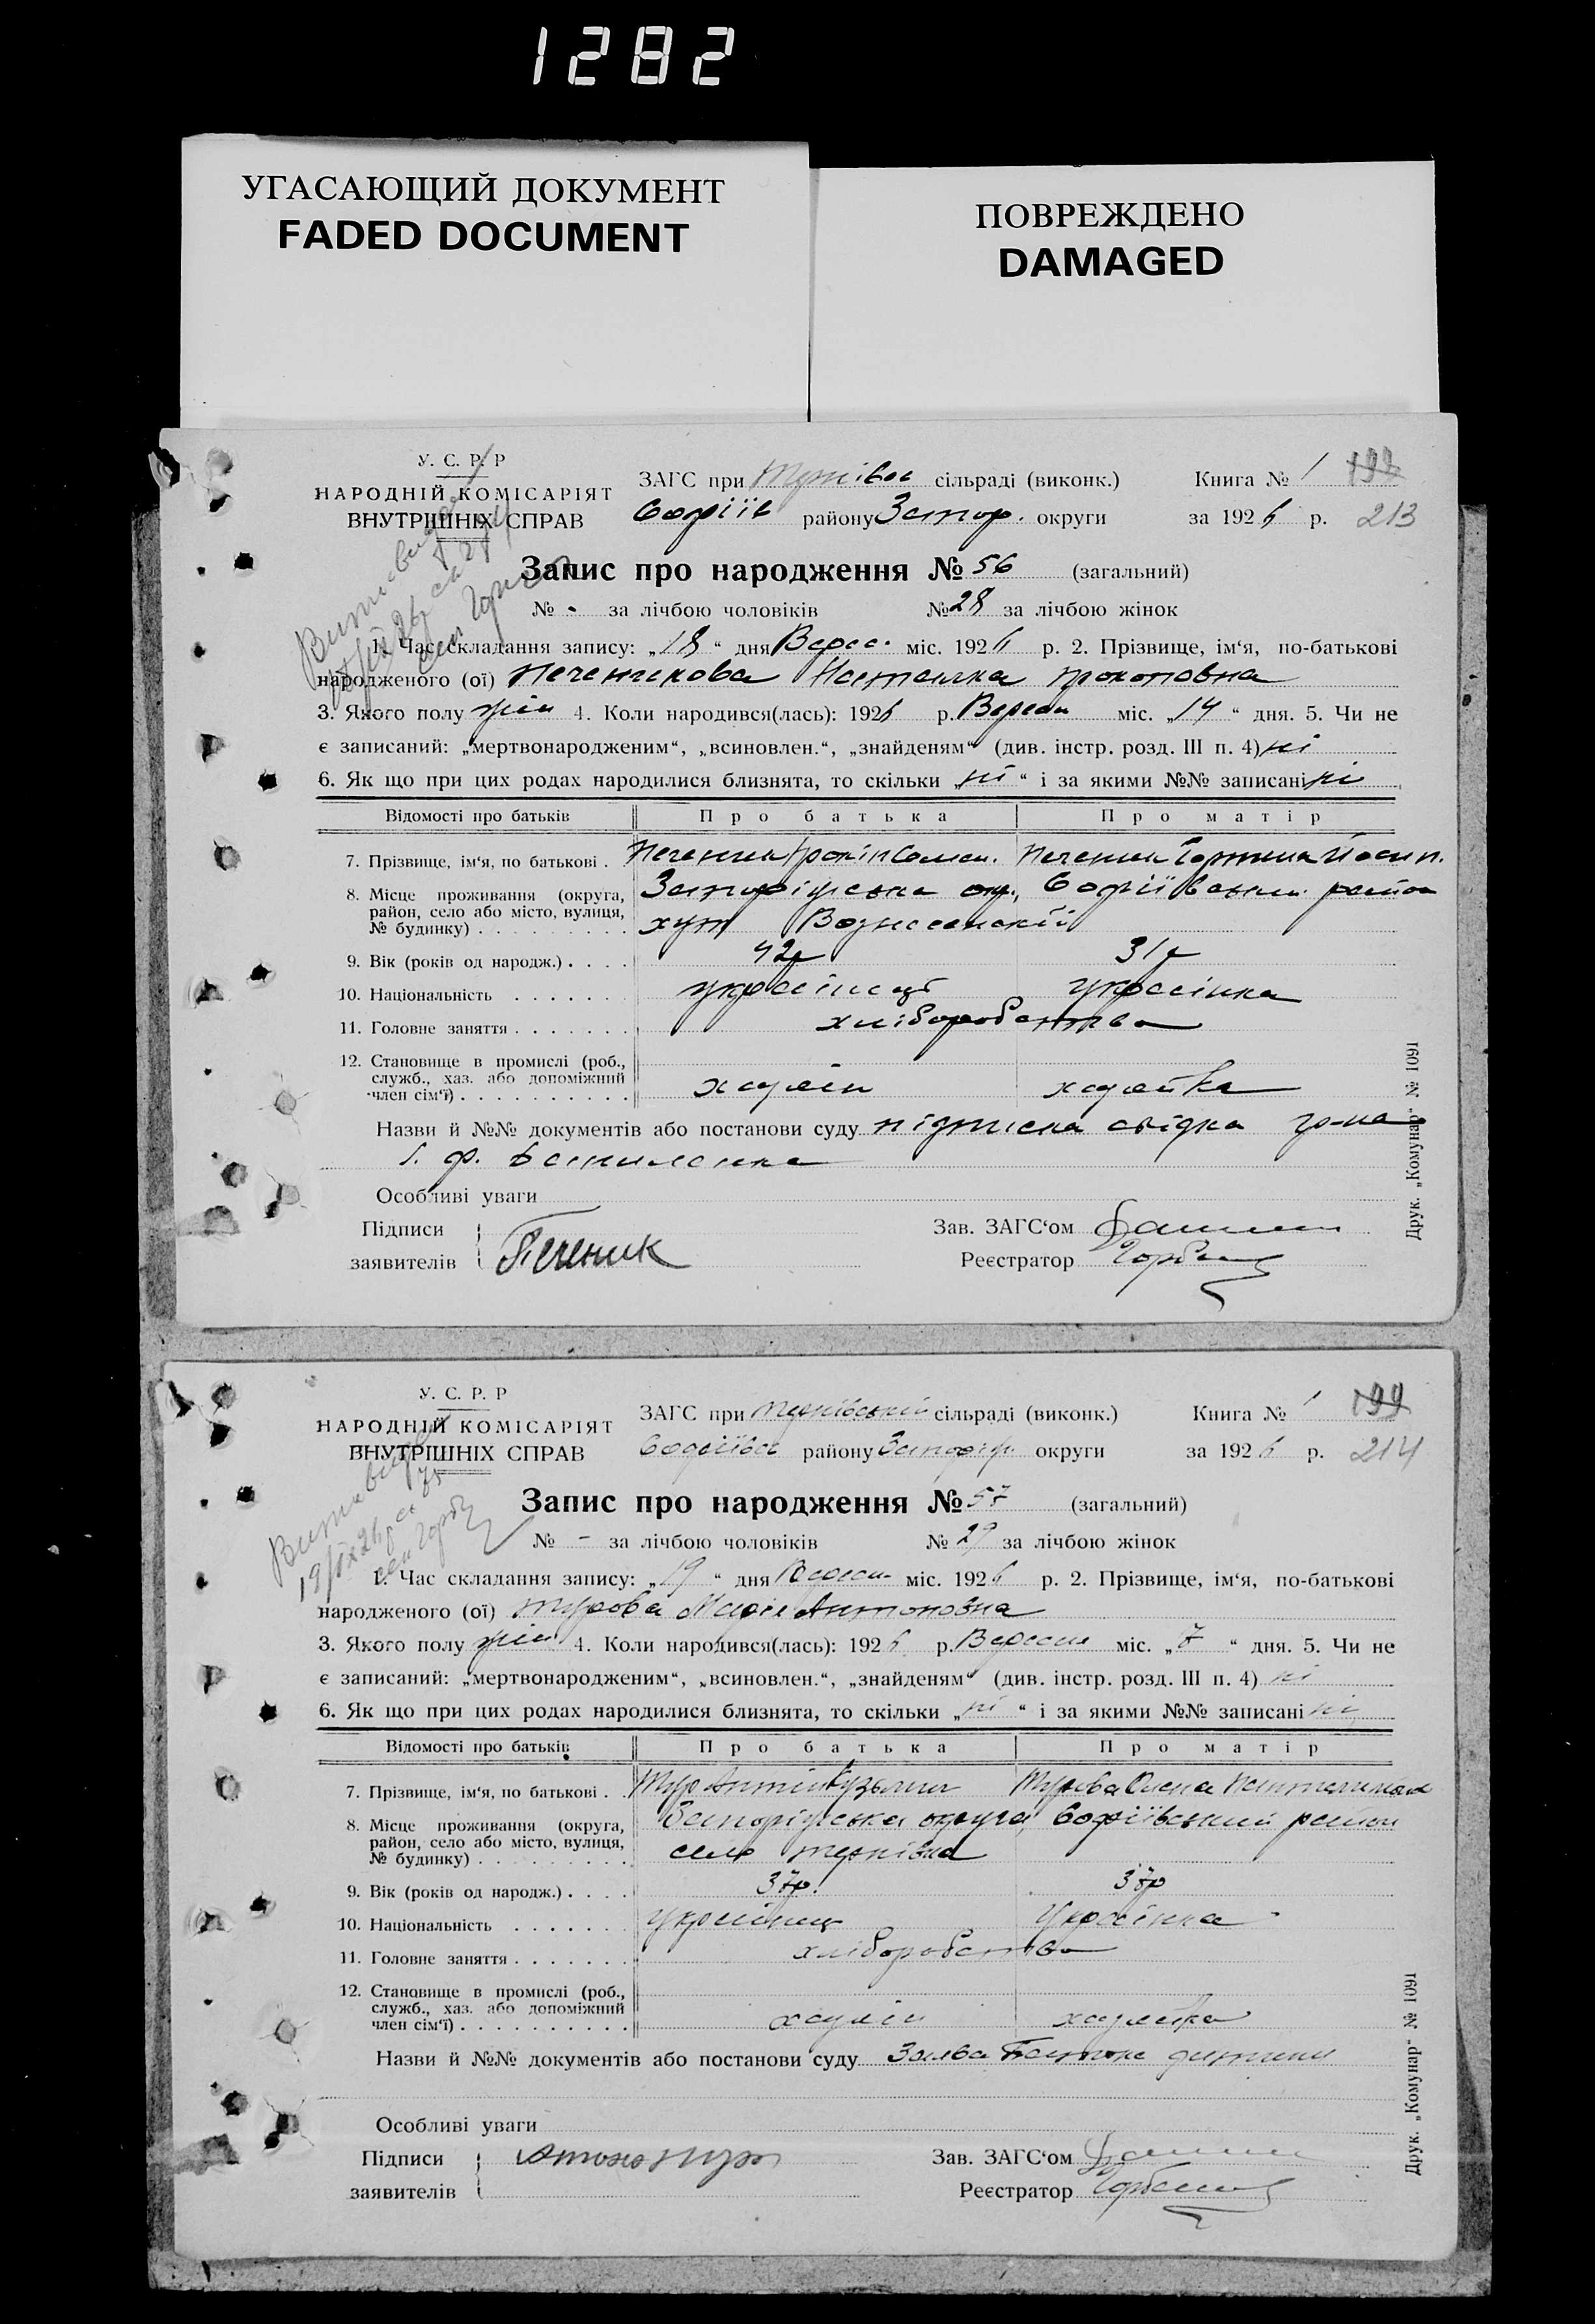 1282
УГАСАЮЩИЙ ДОКУМЕНТ
FADED DOCUMENT
ПОВРЕЖДЕНО
DAMAGED
У. С. Р. Р
НАРОДНІЙ КОМІСАРІЯТ
ВНУТРІШНІХ СПРАВ
ЗАГС при сільраді (виконк.)
Софіїв району Запор. округи
Книга № 1 199
за 1926 р. 213
Запис про народження № 56 (загальний)
№ - за лічбою чоловіків № 28 за лічбою жінок
1. Час складання запису: „18“ дня Верес. міс. 1926 р. 2. Прізвище, ім‘я, по-батькові
народженого (ої) Печеникова Наталка Прокоповна
3. Якого полу жін 4. Коли народився(лась): 1926 р. Вересн міс. „14“ дня. 5. Чи не
є записаний: „мертвонародженим“, „всиновлен.“, „знайденям“ (див. інстр. розд. III п. 4) ні
6. Як що при цих родах народилися близнята, то скільки „ні“ і за якими №№ записані ні
Відомості про батьків Про батька Про матір
7. Прізвище, ім‘я, по батькові . Печеник Прокіп Семен. Печеник Йосип.
8. Місце проживання (округа, район, село або місто, вулиця, № будинку) . Запорізська окр., Софіївський район
хут Вознесенскій
9. Вік (років од народж.) . . . . 42р 31р
10. Національність . . . . . . . українець українка
11. Головне заняття . . . . . . . хліборобство
12. Становище в промислі (роб., служб., хаз. або допоміжний член сім‘ї) . . . . . . . . . . хазяїн хазяйка
Назви й №№ документів або постанови суду підписка свідка гр-на
Особливі уваги
Підписи
заявителів Печеник
Зав. ЗАГС‘ом
Реєстратор Горбань
Друк. „Комунар“ № 1091
У. С. Р. Р
НАРОДНІЙ КОМІСАРІЯТ
ВНУТРІШНІХ СПРАВ
ЗАГС при сільраді (виконк.)
Софіївск району Запоріз. округи
Книга № 1 199
за 1926 р. 214
Запис про народження № 57 (загальний)
№ - за лічбою чоловіків № 29 за лічбою жінок
1. Час складання запису: „19“ дня Вересн. міс. 1926 р. 2. Прізвище, ім‘я, по-батькові
народженого (ої) Турова Марія Антоновна
3. Якого полу жін 4. Коли народився(лась): 1926 р. Вересня міс. „7“ дня. 5. Чи не
є записаний: „мертвонародженим“, „всиновлен.“, „знайденям“ (див. інстр. розд. III п. 4) ні
6. Як що при цих родах народилися близнята, то скільки „ні“ і за якими №№ записані ні
Відомості про батьків Про батька Про матір
7. Прізвище, ім‘я, по батькові . Тур Антін Кузьмич Турова Олена
8. Місце проживання (округа, район, село або місто, вулиця, № будинку) . Запорізська округа, Софіївський район
село
9. Вік (років од народж.) . . . . 37р. 37р
10. Національність . . . . . . . Українець Українка
11. Головне заняття . . . . . . . хліборобство
12. Становище в промислі (роб., служб., хаз. або допоміжний член сім‘ї) . . . . . . . . . . хазяїн хазяйка
Назви й №№ документів або постанови суду Заява Батька дитини
Особливі уваги
Підписи
заявителів Антон Тур
Зав. ЗАГС‘ом
Реєстратор Горбань
Друк. „Комунар“ № 1091